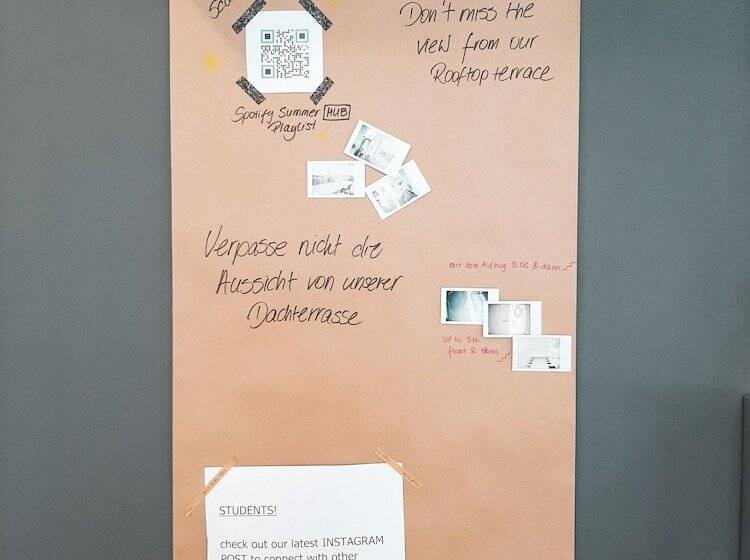 Spotify Summer HUB
Playlist
Don't miss the
view from our
Rooftop terrace
Verpasse nicht die
Aussicht von unserer
Dachterrasse
mit dem Aufzug 5.OG & dann
UP to 5th
floor & then
STUDENTS!
check out our latest INSTAGRAM
POST to connect with other